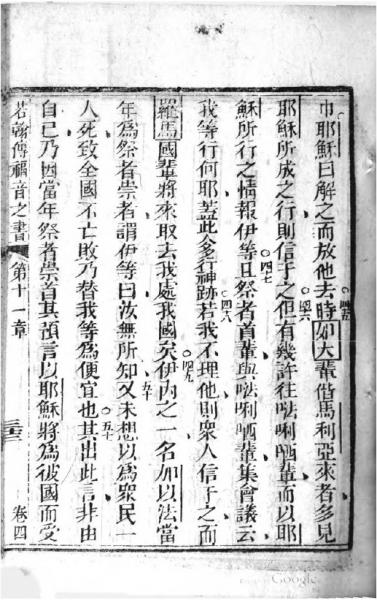 巾耶穌曰解之而放他去時如大輩偕馬利亞來者多見
耶穌所成之行則信于之但有幾許往𠵽唎哂輩而以耶
穌所行之情報伊等且祭者首輩與𠵽唎哂輩集會議云
我等行何耶蓋此人多行神跡若我不理他則衆人信于之而
羅馬國輩將來取去我處我國矣伊內之一名加以法當
年為祭者崇者謂伊等曰汝無所知又未想以為衆民一
人死致全國不亡敗乃替我等為便宜也其出此言非由
自己乃因當年祭者崇者其預言以耶穌將為彼國而受
若翰傳福音之書 第十一章 卷四
四五
四六
四七
四八
四九
五十
Google